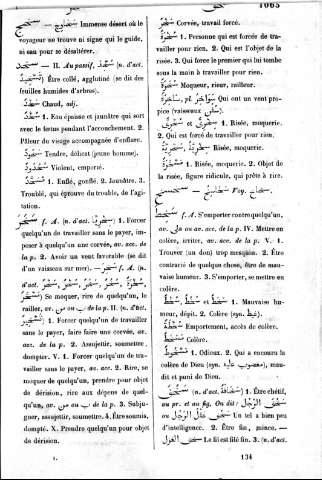 1065
سخابيخ — Immense désert où le
voyageur ne trouve ni signe qui le guide,
ni eau pour se désaltérer.
سخد — II. Au passif, سُخِّدَ (n. d'act.
تَسْخِيد) Être collé, agglutiné (se dit des
feuilles humides d'arbres).
سَخْدٌ Chaud, adj.
سُخْدٌ 1. Eau épaisse et jaunâtre qui sort
avec le fœtus pendant l'accouchement. 2.
Pâleur du visage accompagnée d'enflure.
Tendre, délicat (jeune homme).
Violent, emporté.
مُسَخَّدٌ 1. Enflé, gonflé. 2. Jaunâtre. 3.
Troublé, qui éprouve du trouble, de l'agi-
tation.
سَخَرَ f. A. (n. d'act. سِخْرِيّ) 1. Forcer
quelqu'un de travailler sans le payer, im-
poser à quelqu'un une corvée, av. acc. de
la p. 2. Avoir un vent favorable (se dit
d'un vaisseau sur mer). — سَخِرَ f. A. (n.
d'act.
) Se moquer, rire de quelqu'un, le
railler, av. من ou ب de la p. II. (n. d'act.
تَسْخِير) 1. Forcer quelqu'un de travailler
sans le payer, faire faire une corvée, av.
acc. de la p. 2. Assujettir, soumettre,
dompter. V. 1. Forcer quelqu'un de tra-
vailler sans le payer, av. acc. 2. Rire, se
moquer de quelqu'un, prendre pour objet
de dérision, rire aux dépens de quel-
qu'un, av. من ou ب de la p. 3. Subju-
guer, assujettir, soumettre. 4. Être soumis,
dompté. X. Prendre quelqu'un pour objet
de dérision.
I.
سُخْرَةٌ Corvée, travail forcé.
سُخْرَةٌ 1. Personne qui est forcée de tra-
vailler pour rien. 2. Qui est l'objet de la
risée. 3. Qui force le premier qui lui tombe
sous la main à travailler pour rien.
سُخَرَةٌ Moqueur, rieur, railleur.
سَاخِرَةٌ, pl. سَوَاخِرُ Qui ont un vent pro-
pice (vaisseaux سُفُن).
سِخْرِيّ et سُخْرِيّ 1. Risée, moquerie.
2. Qui est forcé de travailler pour rien.
Risée, moquerie.
1. Risée, moquerie. 2. Objet de la
risée, figure ridicule, qui prête à rire.
Voy.
سَخِطَ f. A. S'emporter contre quelqu'un,
av. على de la p. IV. Mettre en
colère, irriter, av. acc. de la p. V. 1.
Trouver (un don) trop mesquin. 2. Être
contrarié de quelque chose, être de mau-
vaise humeur. 3. S'emporter, se mettre en
colère.
سُخْطٌ et سَخَطٌ 1. Mauvaise hu-
meur, dépit. 2. Colère (syn. غيظ).
سَخْطَةٌ Emportement, accès de colère.
Colère.
مَسْخُوطٌ 1. Odieux. 2. Qui a encouru la
colère de Dieu (syn. مغضوب عليه), mau-
dit et puni de Dieu.
سَخُفَ (n. d'act. سَخَافَة) 1. Être chétif,
au pr. et au fig. On dit : سخف الرجل
ou سخف عقل الرجل Un tel a bien peu
d'intelligence. 2. Être fin, mince. —
سخف الغزل Le fil est filé fin. 3. (n. d'act.
134